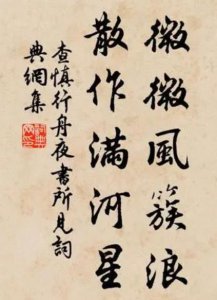 微微風簇浪
散作滿河星
查慎行舟夜書所見詞
典網集